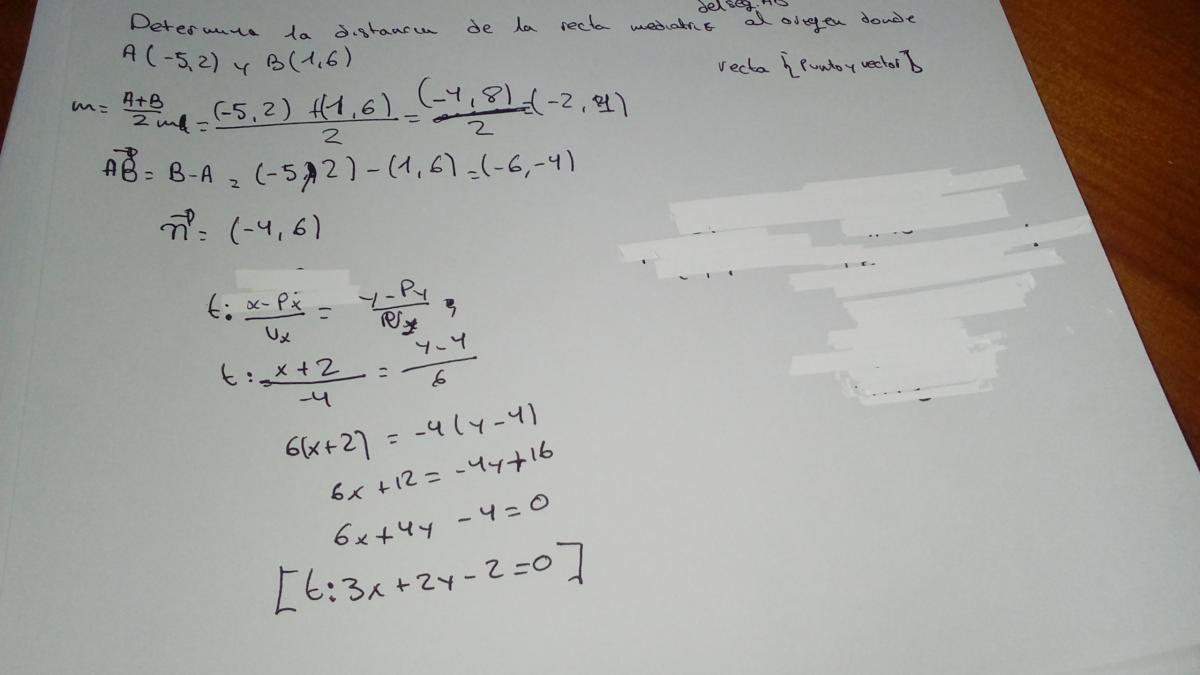 del seg. AB
Determina la distancia de la recta mediatriz al origen donde
A (-5,2) y B(1,6)
recta { Punto y vector }
m = A+B / 2 = (-5,2) + (1,6) / 2 = (-4,8) / 2 = (-2, 4)
AB = B-A = (-5, 2) - (1,6) = (-6,-4)
n = (-4, 6)
t: x-Px / Ux = y-Py / Uy ;
t: x+2 / -4 = y-4 / 6
6(x+2) = -4(y-4)
6x+12 = -4y+16
6x+4y -4=0
[t: 3x+2y-2=0]